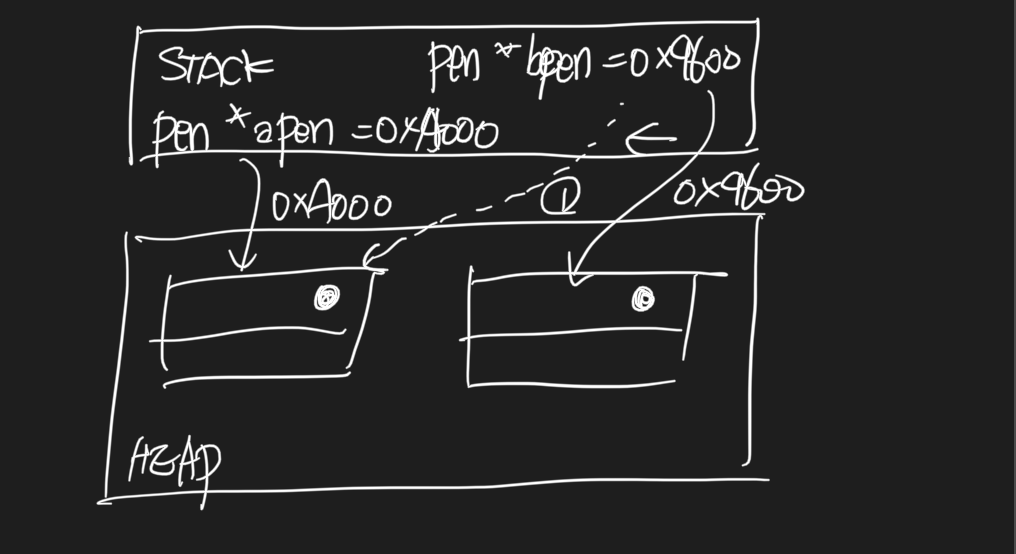 STACK
pen * bpen = 0x9600
pen * apen = 0xA000
0xA000
①
0x9600
HEAP